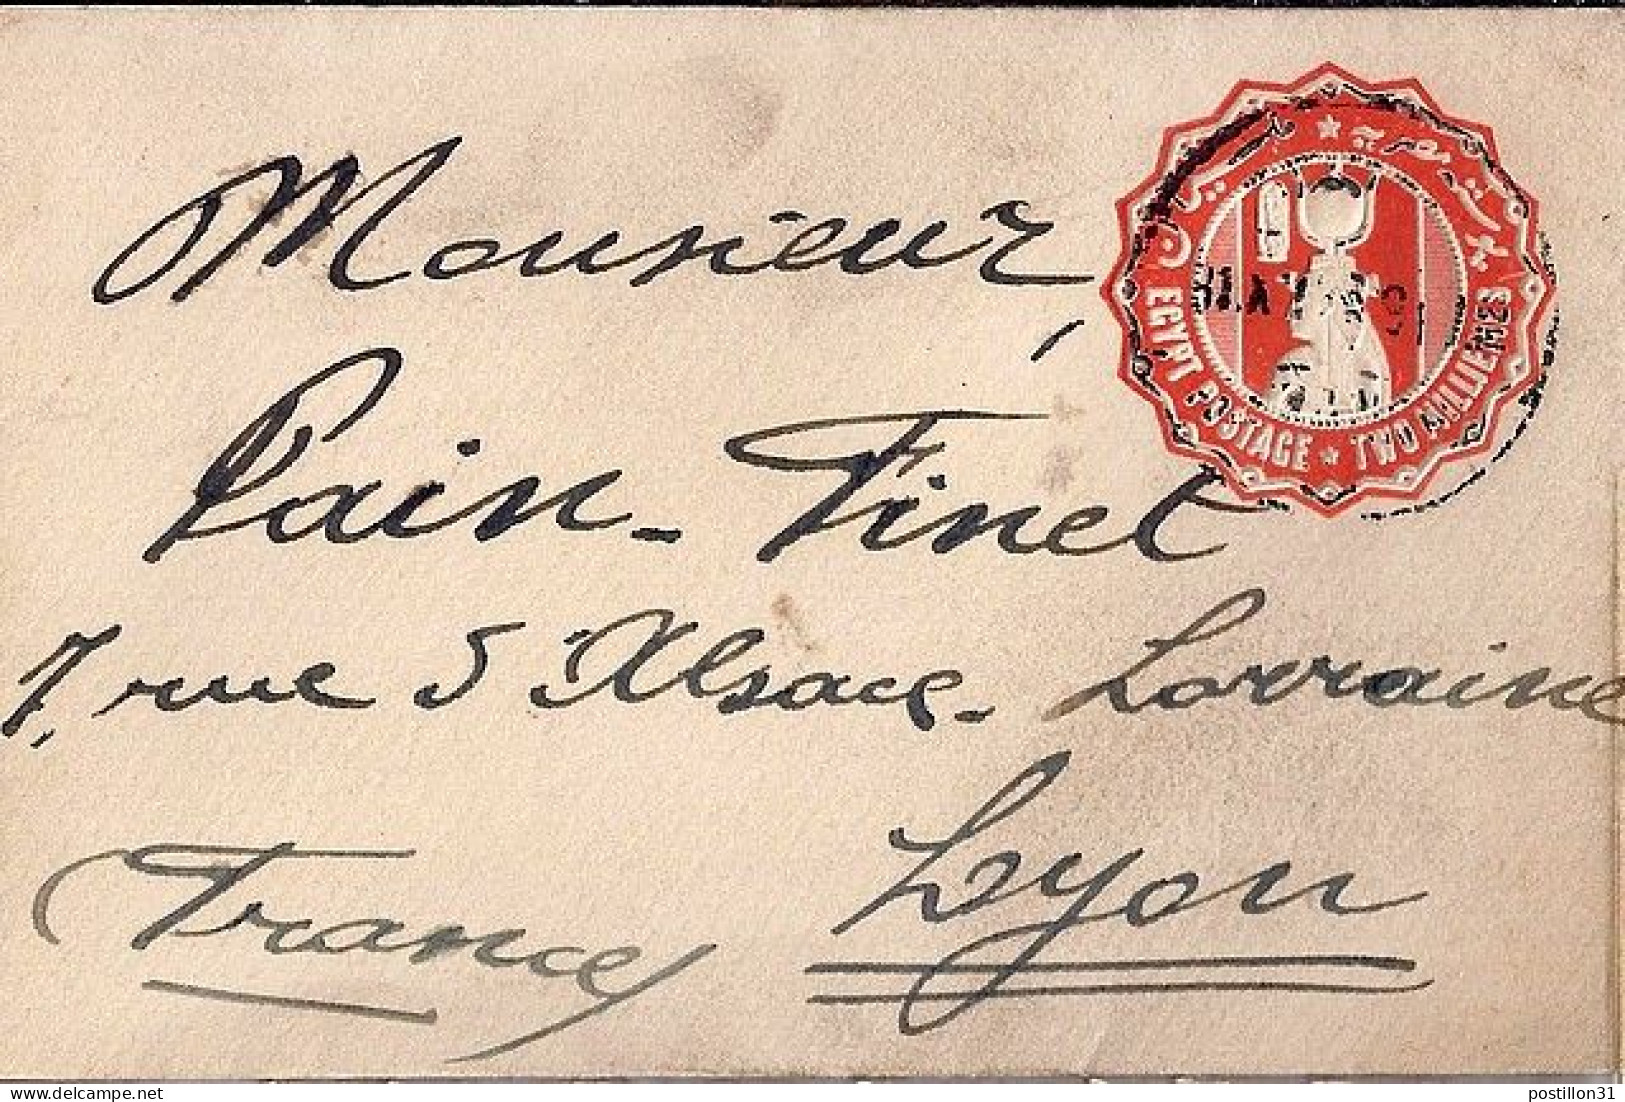 Monsieur
Pain-Finet
7, rue d'Alsace-Lorraine
Lyon
France
EGYPT POSTAGE ★ TWO MILLIEMES
postillon31